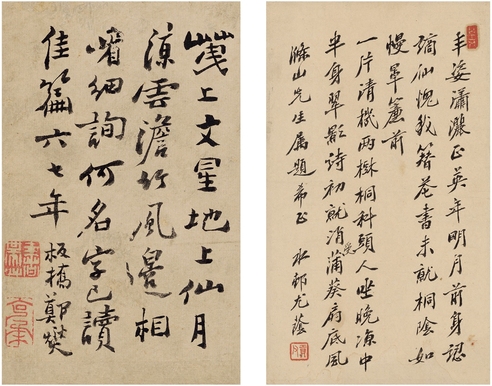 丰姿瀟灑正英年明月前身認
謫仙愧我簪花書未就桐陰如
幔罩簾前
一片清機兩樹桐科頭人坐晚涼中
半身翠影詩初就消受蒲葵扇底風
滌山先生屬題希正 水邨尤蔭
上文星地上仙月
涼雲澹竹風邊相
睹細詢何名字已讀
佳篇六七年 板橋鄭燮